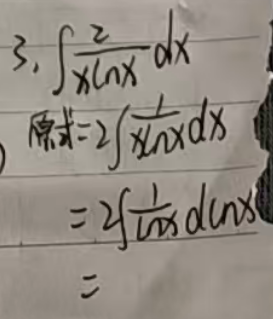 3. ∫ 2/(x ln x) dx
原式 = 2∫ 1/(x ln x) dx
= 2∫ 1/(ln x) d ln x
=